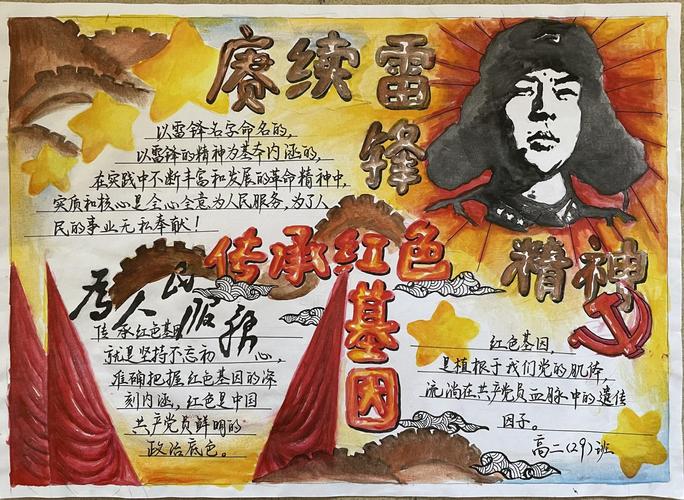 赓续雷
锋
精神
以雷锋名字命名的,
以雷锋的精神为基本内涵的,
在实践中不断丰富和发展的革命精神中,
实质和核心是全心全意为人民服务,为了人
民的事业无私奉献!
传承红色
基因
为人民
服务
传承红色基因
就是坚持不忘初心,
准确把握红色基因的深
刻内涵,红色是中国
共产党员鲜明的
政治底色。
红色基因,
是植根于我们党的肌体,
流淌在共产党员血脉中的遗传
因子。
高二(29)班